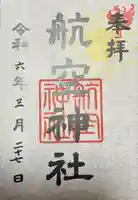 奉拝
航空神社
令和六年三月二十七日